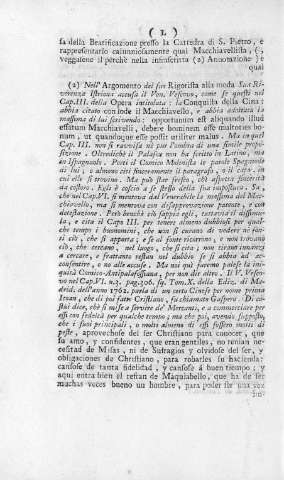 ( L )
sa della Beatificazione presso la Cattedra di S. Pietro, e
rappresentarlo calunniosamente qual Macchiavellista, (,
veggasene il perchè nella infrascritta (2) Annotazione ) e
qual
(2) Nell' Argomento del suo Rigorista alla moda Sua Ri-
verenza istrione accusa il Ven. Vescovo, come se questi nel
Cap.III. della Opera intitolata: la Conquista della Cina:
abbia citato con lode il Macchiavello, e abbia adottata la
massima di lui scrivendo: opportunum est aliquando illud
effatum Macchiavelli, debere hominem esse multoties bo-
num, ut quandoque esse possit utiliter malus. Ma in quel
Cap. III. non si ravvisa nè pur l'ombra di una simile propo-
sizione. Oltredichè il Palafox non ha scritto in Latino, ma
in Ispagnuolo. Porti il Comico Molinista le parole Spagnuole
di lui, o almeno citi sinceramente il paragrafo, e il capo, in
cui elle si trovino. Ma può star fresco, chi aspetta sincerità
da costoro. Egli è coscio a se stesso della sua impostura. Sa,
che nel Cap.VI. si mentova dal Venerabile la massima del Mac-
chiavello, ma si mentova con disapprovazione patente, e con
detestazione. Però benchè ciò sappia egli, tuttavia il dissimu-
la, e cita il Capo III. per tenere almeno dubbiosi per qual-
che tempo i buonomini, che non si curano di vedere ne' fon-
ti ciò, che si apporta, e se al fonte ricorrono, e non trovano
ciò, che cercano, nel luogo, che si cita, non tirano innanzi
a cercare, e frattanto restan nel dubbio se si abbia ad ac-
consentire, o no alle accuse. Ma noi quì faremo palese la ini-
quità Comico-Antipalafossiana, per non dir altro. Il V. Vesco-
vo nel Cap.VI. n.3. pag.306. sg. Tom.X. della Ediz. di Ma-
drid. dell'anno 1762. parla di un certo Cinese per nome prima
Icoan, che di poi fatto Cristiano, fu chiamato Gaspero. Di co-
stui dice, che si mise a servire de' Mercanti, e a commerciare per
essi con fedeltà per qualche tempo; ma che poi, avendo supposto,
che i suoi principali, o molti almeno di essi fossero morti di
peste, aprovechose del ser Christiano para conocer, que
su amo, y confidentes, que eran gentiles, no tenian ne-
cesitad de Misas, ni de Sufragios y olvidose del ser, y
obligaciones de Christiano, para robarles su hacienda:
cansose de tanta fidelidad, y cansose á buen tiempo; y
aqui entra bien el refran de Maquiabelo, que ha de ser
muchas veces bueno un hombre, para poder ser una vez